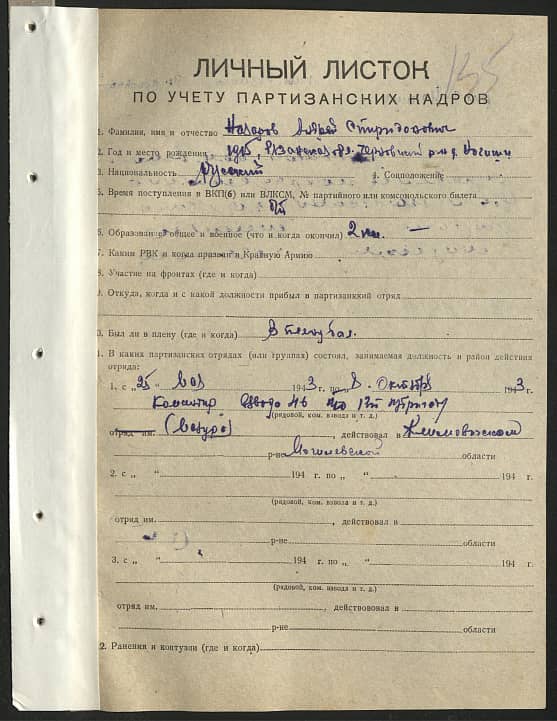 135
ЛИЧНЫЙ ЛИСТОК
ПО УЧЕТУ ПАРТИЗАНСКИХ КАДРОВ
1. Фамилия, имя и отчество Назаров Андрей Спиридонович
2. Год и место рождения 1915,
3. Национальность Русский 4. Соцположение
5. Время поступления в ВКП(б) или ВЛКСМ, № партийного или комсомольского билета
б/п
6. Образование общее и военное (что и когда окончил) 2 кл. —
7. Каким РВК и когда призван и Красную Армию
8. Участие на фронтах (где и когда)
9. Откуда, когда и с какой должности прибыл в партизанкий отряд
0. Был ли в плену (где и когда) В плену был.
1. В каких партизанских отрядах (или группах) состоял, занимаемая должность и район действия
отряда:
1. с „25 " 1943 г. по „8. Октября 1943 г.
Командир взвода
(рядовой, ком. взвода и т. д.)
отряд им. , действовал в Климовичском
р-не Могилевской области
2. с „ " 194 г. по „ " 194 г.
(рядовой, ком. взвода и т. д.)
отряд им. , действовал в
р-не области
3. с „ " 194 г. по „ " 194 г.
(рядовой, ком. взвода и т. д.)
отряд им. , действововал в
р-не области
2. Ранения и контузии (где и когда)